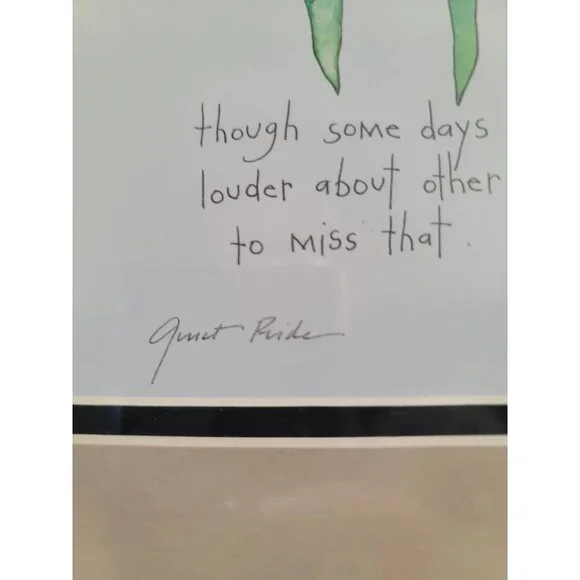 though some days
louder about other
to miss that.
Quiet Pride